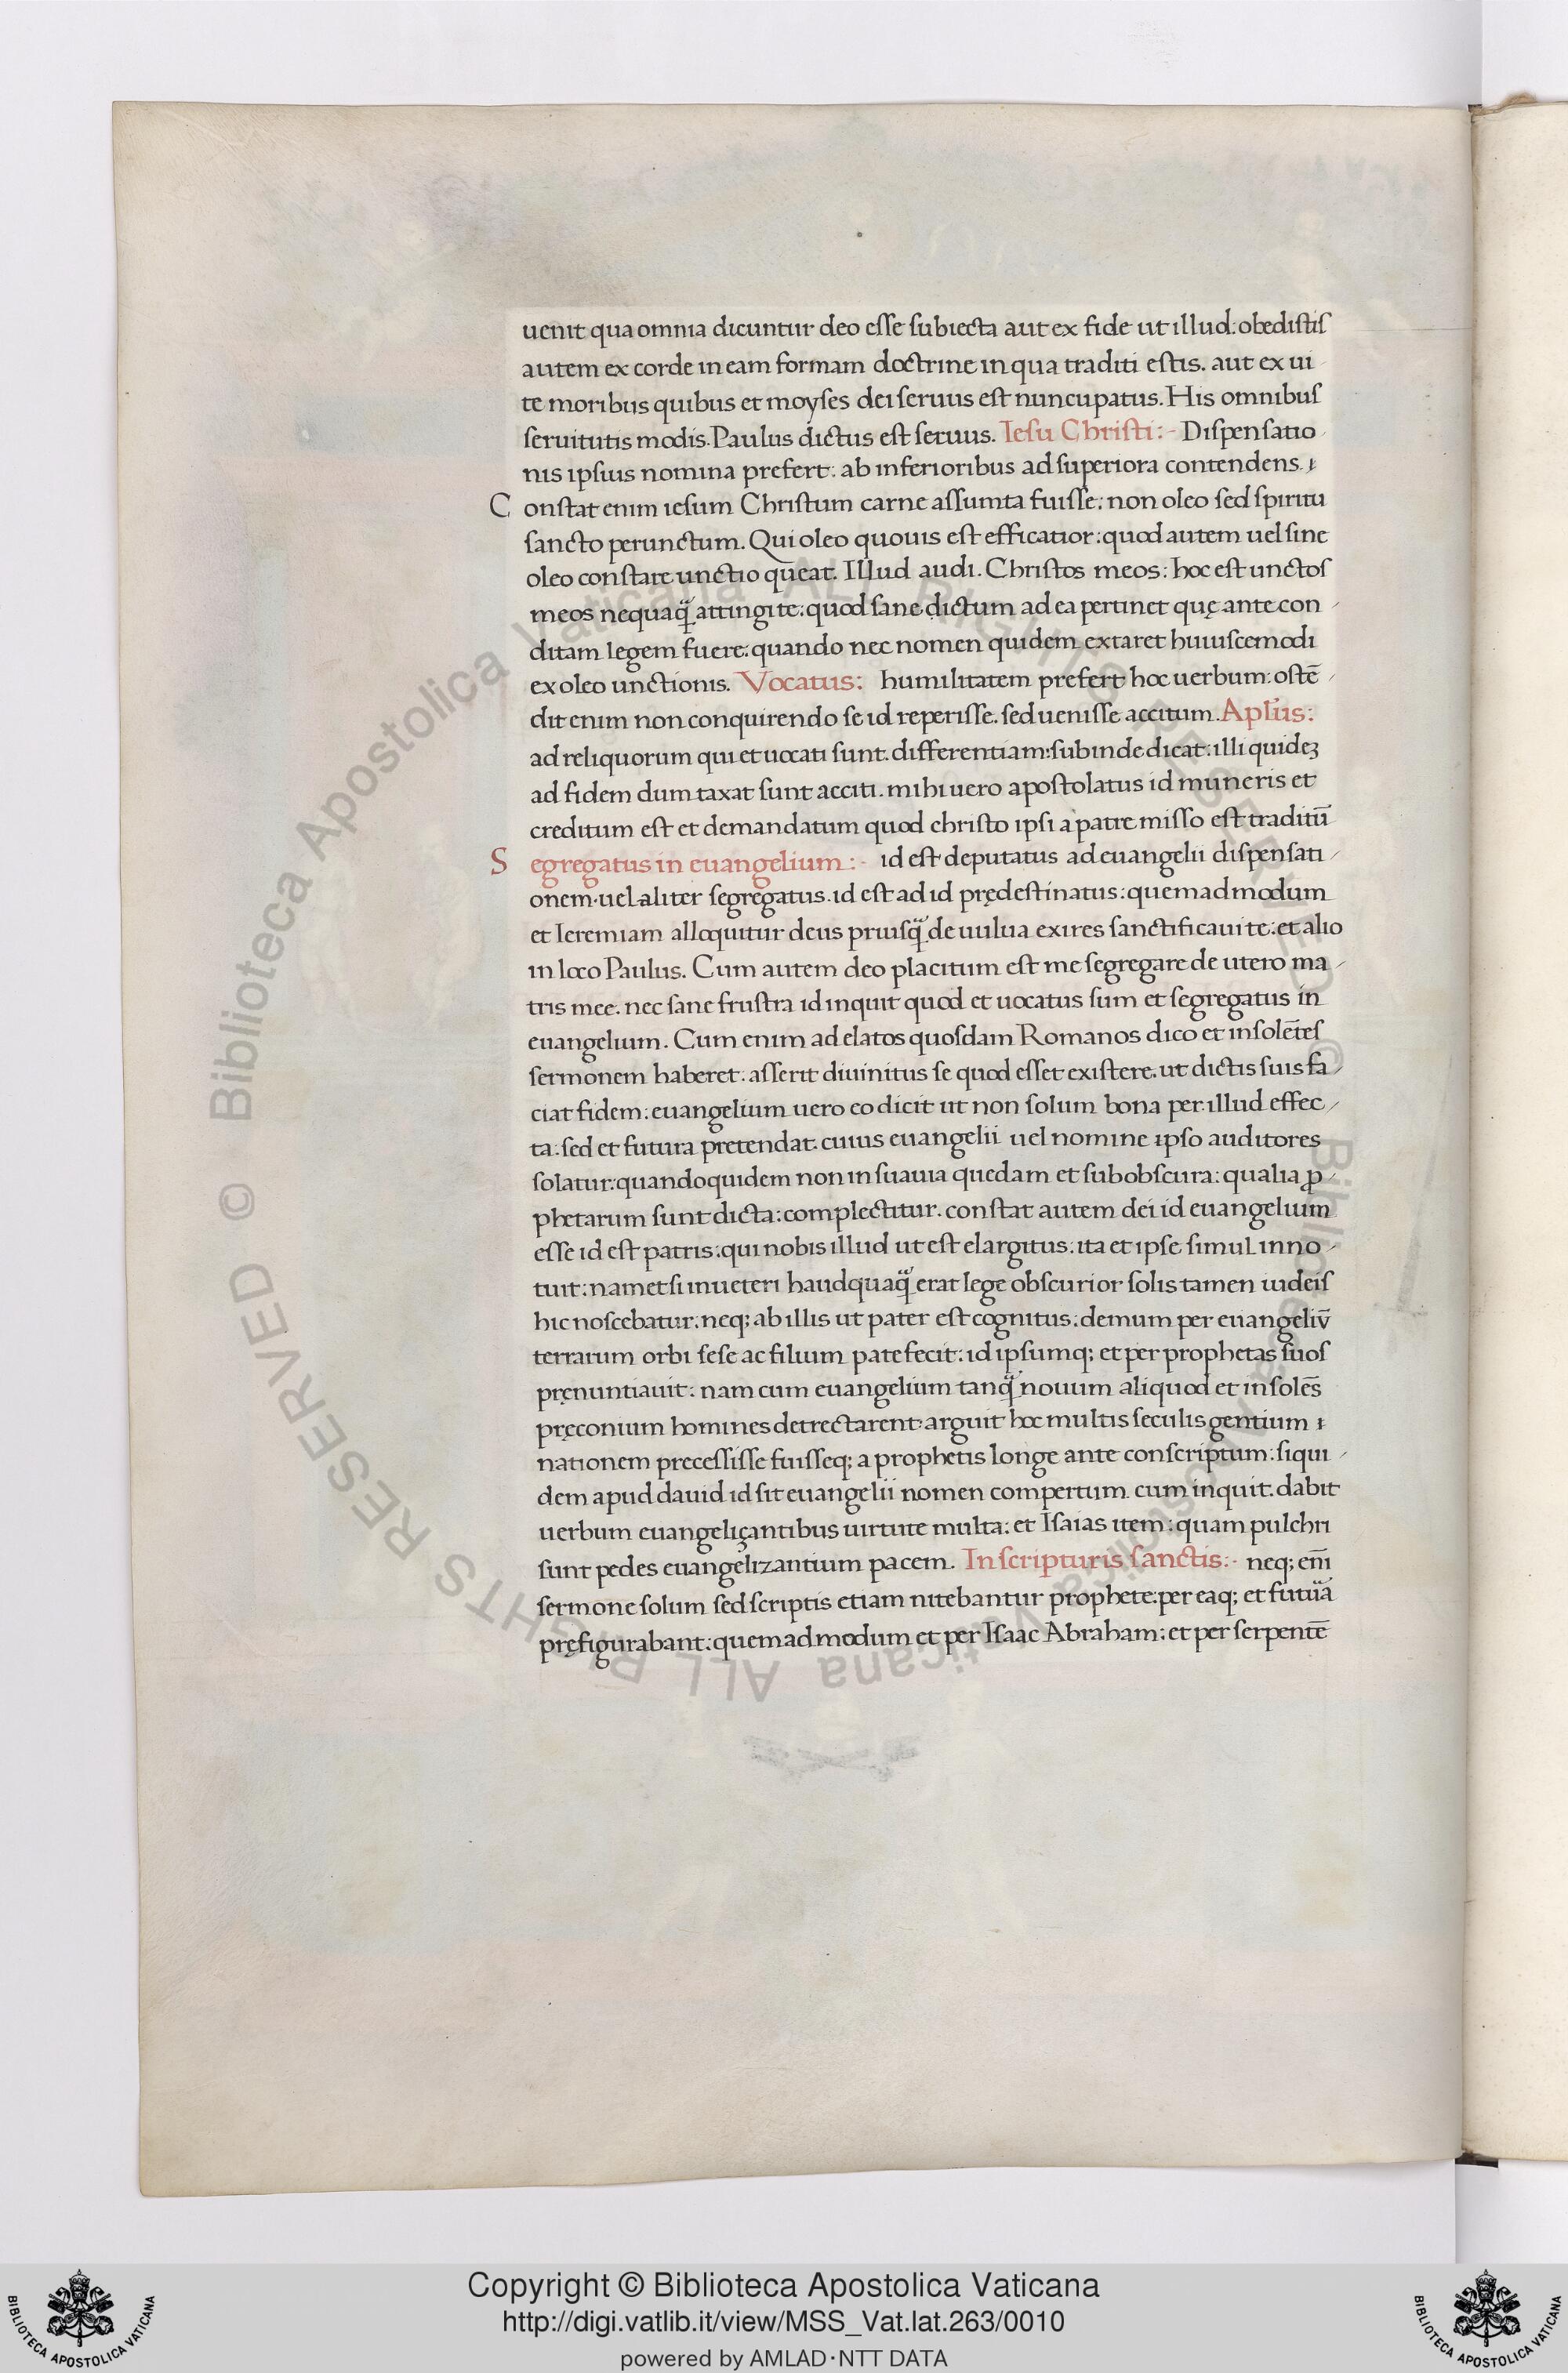 uenit qua omnia dicuntur deo esse subiecta aut ex fide ut illud: obedistis
autem ex corde in eam formam doctrine in qua traditi estis. aut ex ui
te moribus quibus et moyses dei seruus est nuncupatus. His omnibus
seruitutis modis. Paulus dictus est seruus. Iesu Christi:- Dispensatio
nis ipsius nomina prefert: ab inferioribus ad superiora contendens.
Constat enim iesum Christum carne assumta fuisse: non oleo sed spiritu
sancto perunctum. Qui oleo quouis est efficatior: quod autem uel sine
oleo constare unctio queat. Illud audi. Christos meos: hoc est unctos
meos nequaq̃ attingite: quod sane dictum ad ea pertinet quę ante con
ditam legem fuere: quando nec nomen quidem extaret huiuscemodi
ex oleo unctionis. Vocatus: humilitatem prefert hoc uerbum: ostē
dit enim non conquirendo se id reperisse. sed uenisse accitum. Apl̄us:
ad reliquorum qui et uocati sunt. differentiam: subinde dicat: illi quideʒ
ad fidem dum taxat sunt acciti. mihi uero apostolatus id muneris et
creditum est et demandatum quod christo ipsi a patre misso est traditū
Segregatus in euangelium:- id est deputatus ad euangelii dispensati
onem. uel aliter segregatus. id est ad id prędestinatus: quemadmodum
et Ieremiam alloquitur deus priusq̃ de uulua exires sanctificaui te: et alio
in loco Paulus. Cum autem deo placitum est me segregare de utero ma
tris mee. nec sane frustra id inquit quod et uocatus sum et segregatus in
euangelium. Cum enim ad elatos quosdam Romanos dico et insolētes
sermonem haberet: asserit diuinitus se quod esset existere. ut dictis suis fa
ciat fidem: euangelium uero eo dicit ut non solum bona per illud effec
ta: sed et futura pretendat. cuius euangelii uel nomine ipso auditores
solatur: quandoquidem non insuauia quedam et subobscura: qualia ꝓ
phetarum sunt dicta: complectitur. constat autem dei id euangelium
esse id est patris: qui nobis illud ut est elargitus: ita et ipse simul inno
tuit: nam etsi in ueteri haudquaq̃ erat lege obscurior solis tamen iudeis
hic noscebatur: neq; ab illis ut pater est cognitus: demum per euangeliū
terrarum orbi sese ac filium patefecit: id ipsumq; et per prophetas suos
pręnuntiauit: nam cum euangelium tanq̃ nouum aliquod et insolēs
pręconium homines detrectarent: arguit hoc multis seculis gentium
nationem precessisse fuisseq; a prophetis longe ante conscriptum: siqui
dem apud dauid id sit euangelii nomen compertum cum inquit. dabit
uerbum euangeliçantibus uirtute multa: et Isaias item: quam pulchri
sunt pedes euangelizantium pacem. In scripturis sanctis:- neq; enī
sermone solum sed scriptis etiam nitebantur prophete: per eaq; et futura
pręfigurabant: quemadmodum et per Isaac Abraham: et per serpentē
Biblioteca Apostolica Vaticana ALL RIGHTS RESERVED © Biblioteca Apostolica Vaticana ALL RIGHTS RESERVED ©
Copyright © Biblioteca Apostolica Vaticana
http://digi.vatlib.it/view/MSS_Vat.lat.263/0010
powered by AMLAD·NTT DATA
BIBLIOTECA APOSTOLICA VATICANA
BIBLIOTECA APOSTOLICA VATICANA